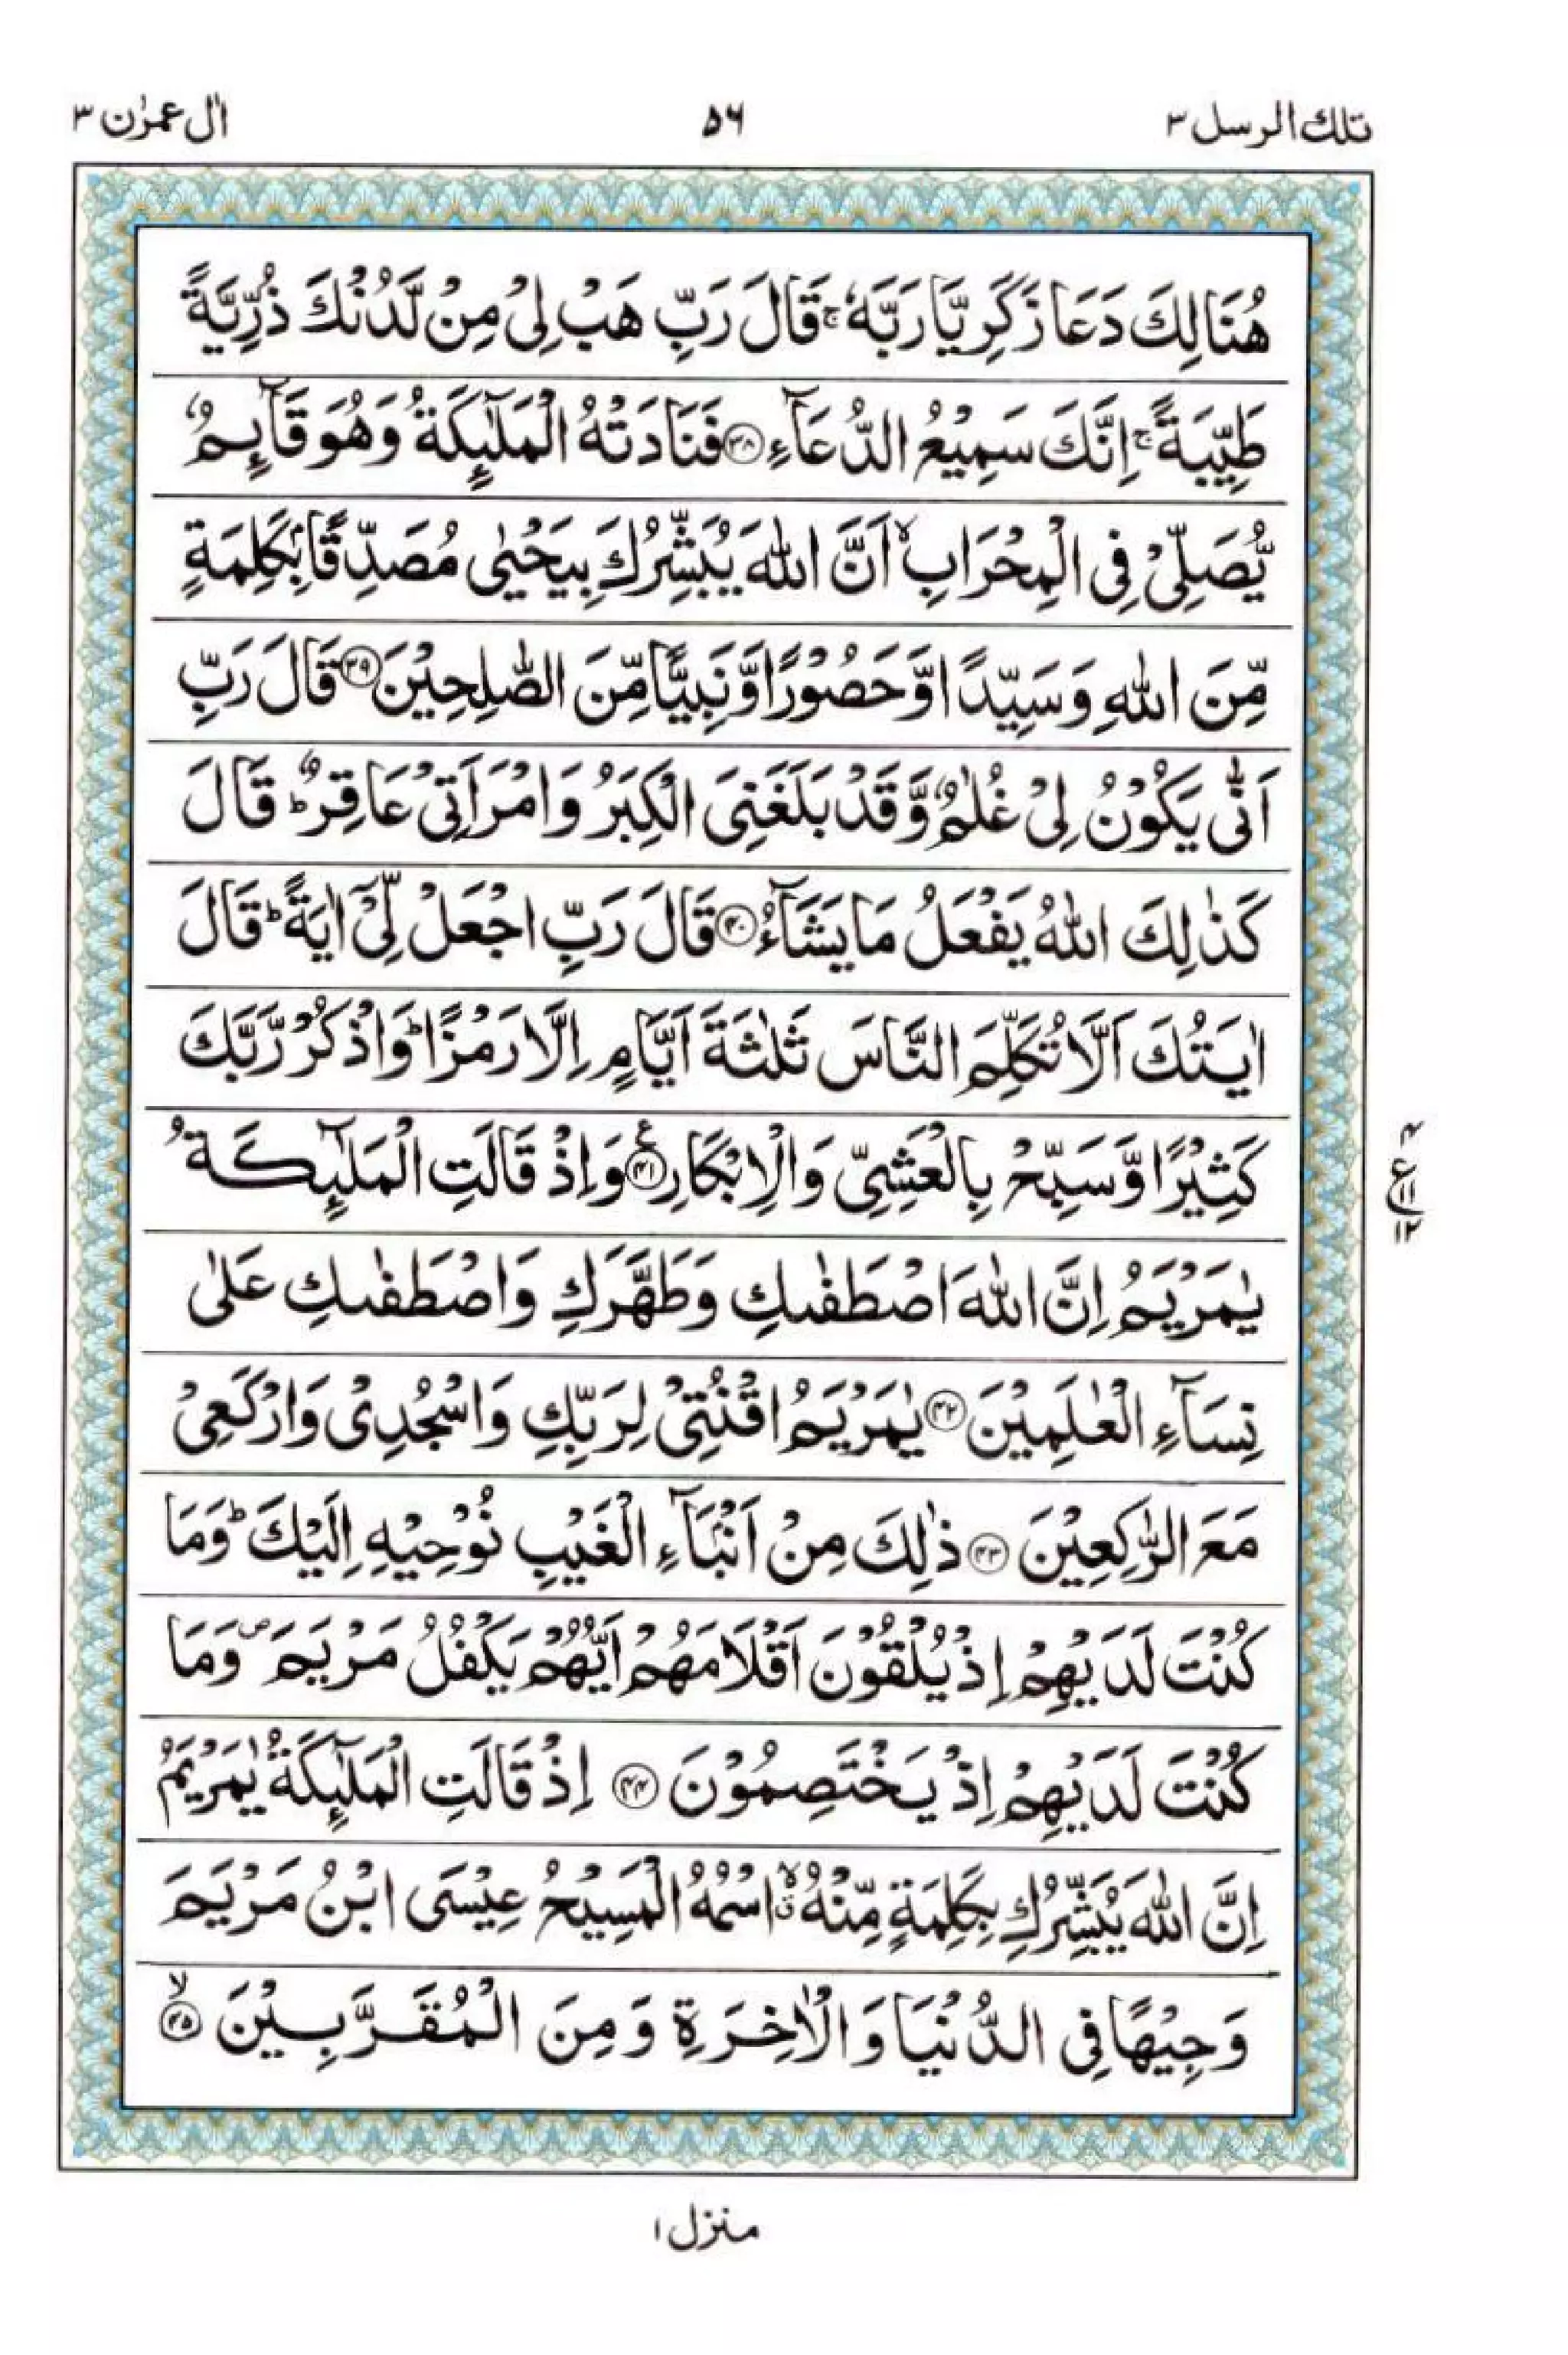 تلك الرسل ٣
٥٦
اٰل عمرٰن ٣
هُنَالِكَ دَعَا زَكَرِيَّا رَبَّهٗ ۚ قَالَ رَبِّ هَبْ لِيْ مِنْ لَّدُنْكَ ذُرِّيَّةً
طَيِّبَةً ۚ اِنَّكَ سَمِيْعُ الدُّعَآءِ ﴿٣٨﴾ فَنَادَتْهُ الْمَلٰٓئِكَةُ وَهُوَ قَآئِمٌ
يُّصَلِّيْ فِي الْمِحْرَابِ ۙ اَنَّ اللّٰهَ يُبَشِّرُكَ بِيَحْيٰى مُصَدِّقًۢا بِكَلِمَةٍ
مِّنَ اللّٰهِ وَسَيِّدًا وَّحَصُوْرًا وَّنَبِيًّا مِّنَ الصّٰلِحِيْنَ ﴿٣٩﴾ قَالَ رَبِّ
اَنّٰى يَكُوْنُ لِيْ غُلٰمٌ وَّقَدْ بَلَغَنِيَ الْكِبَرُ وَامْرَاَتِيْ عَاقِرٌ ؕ قَالَ
كَذٰلِكَ اللّٰهُ يَفْعَلُ مَا يَشَآءُ ﴿٤٠﴾ قَالَ رَبِّ اجْعَلْ لِّيْٓ اٰيَةً ؕ قَالَ
اٰيَتُكَ اَلَّا تُكَلِّمَ النَّاسَ ثَلٰثَةَ اَيَّامٍ اِلَّا رَمْزًا ؕ وَاذْكُرْ رَّبَّكَ
كَثِيْرًا وَّسَبِّحْ بِالْعَشِيِّ وَالْاِبْكَارِ ﴿٤١﴾ ع وَاِذْ قَالَتِ الْمَلٰٓئِكَةُ
٤ ع ١١ ١٢
يٰمَرْيَمُ اِنَّ اللّٰهَ اصْطَفٰىكِ وَطَهَّرَكِ وَاصْطَفٰىكِ عَلٰى
نِسَآءِ الْعٰلَمِيْنَ ﴿٤٢﴾ يٰمَرْيَمُ اقْنُتِيْ لِرَبِّكِ وَاسْجُدِيْ وَارْكَعِيْ
مَعَ الرّٰكِعِيْنَ ﴿٤٣﴾ ذٰلِكَ مِنْ اَنْۢبَآءِ الْغَيْبِ نُوْحِيْهِ اِلَيْكَ ؕ وَمَا
كُنْتَ لَدَيْهِمْ اِذْ يُلْقُوْنَ اَقْلَامَهُمْ اَيُّهُمْ يَكْفُلُ مَرْيَمَ ۪ وَمَا
كُنْتَ لَدَيْهِمْ اِذْ يَخْتَصِمُوْنَ ﴿٤٤﴾ اِذْ قَالَتِ الْمَلٰٓئِكَةُ يٰمَرْيَمُ
اِنَّ اللّٰهَ يُبَشِّرُكِ بِكَلِمَةٍ مِّنْهُ ۙ اسْمُهُ الْمَسِيْحُ عِيْسَى ابْنُ مَرْيَمَ
وَجِيْهًا فِي الدُّنْيَا وَالْاٰخِرَةِ وَمِنَ الْمُقَرَّبِيْنَ ﴿٤٥﴾ ۙ
منزل ١